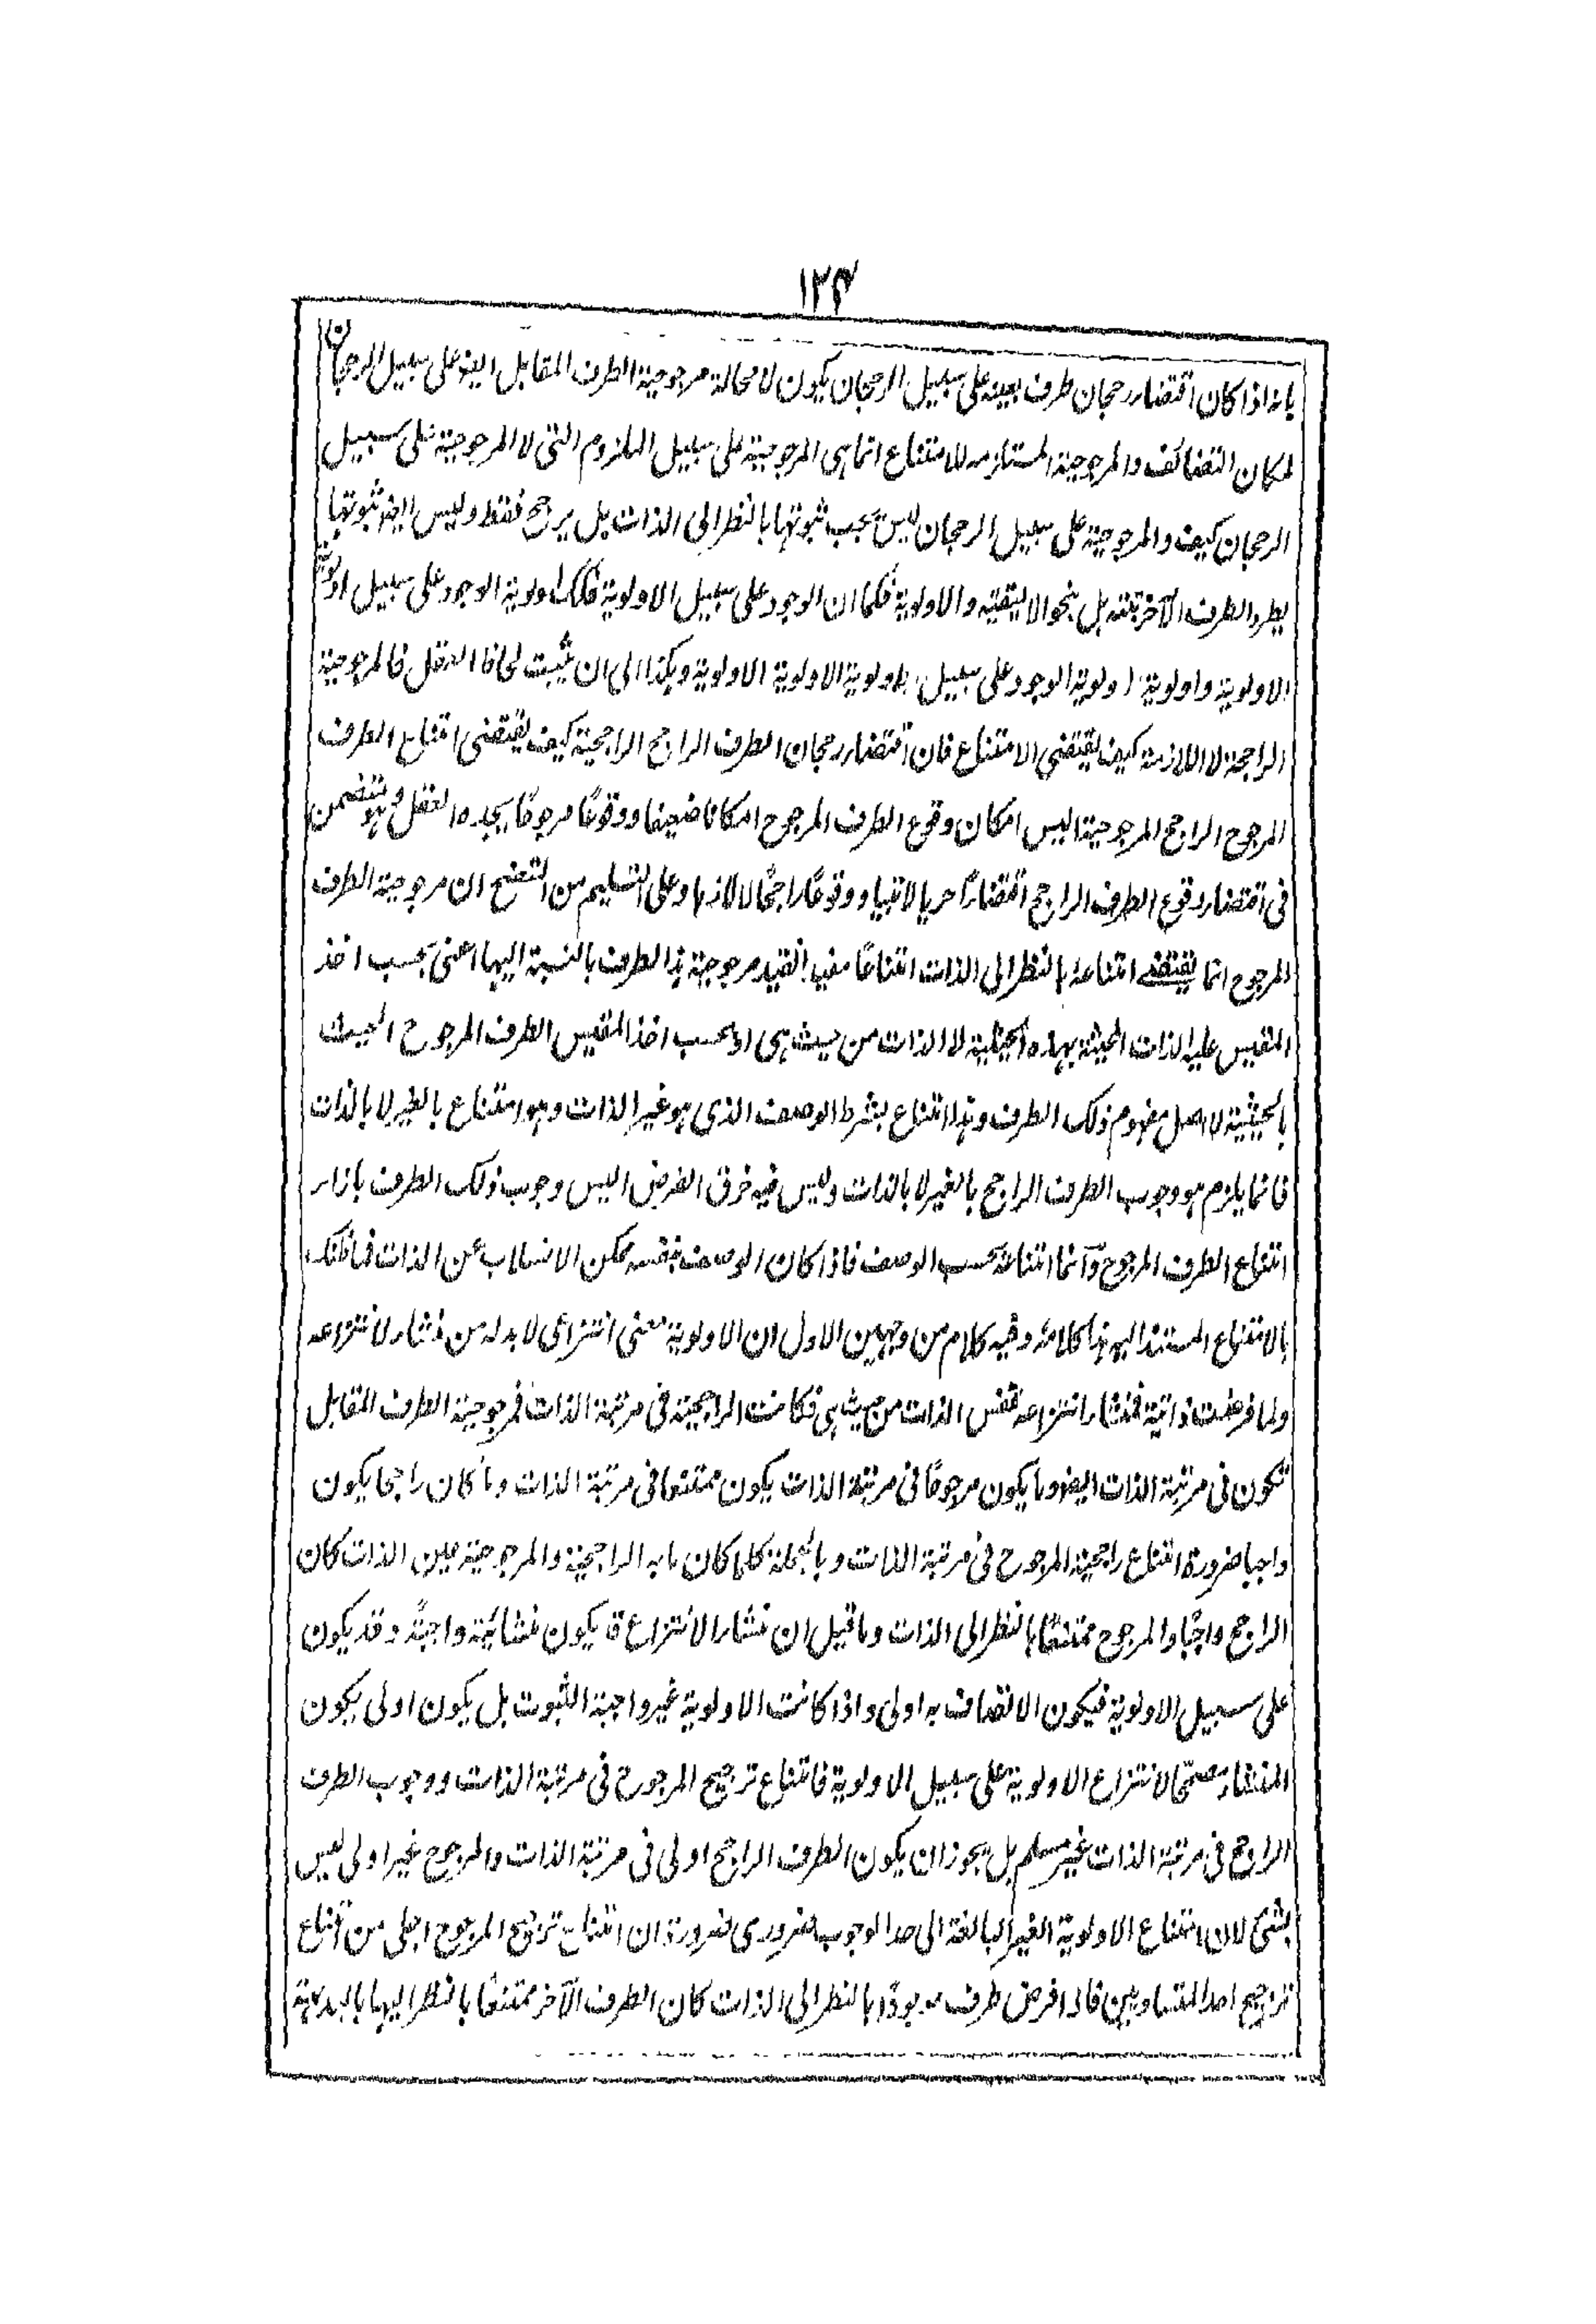 ١٢٤
بانه اذا كان اقتضاء رجحان طرف بعينه على سبيل الرجحان يكون لا محالة مرجوحية الطرف المقابل ايضا على سبيل الرجحان
لمكان التضائف والمرجوحية المستلزمه للامتناع انما هي المرجوحية على سبيل اللزوم التى لا المرجوحية على سبيل
الرجحان كيف والمرجوحية على سبيل الرجحان ليس يجب ثبوتها بالنظر الى الذات بل يرجح فقط وليس ايضا ثبوتها
يطرد الطرف الآخر بتة بل بنحو الاليقية والاولوية فكما ان الوجود على سبيل الاولوية فكذلك اولوية الوجود على سبيل اولوية
الاولوية واولوية اولوية الوجود على سبيل اولوية الاولوية الاولوية وهكذا الى ان يثبت لحاظ العقل فالمرجوحية
الراجحة لا اللازمة كيف يقتضى الامتناع فان اقتضاء رجحان الطرف الراجح الراجحية كيف يقتضى امتناع الطرف
المرجوح الراجح المرجوحية اليس امكان وقوع الطرف المرجوح امكانا ضعيفا ووقوعًا مرجوحًا يجده العقل وهو يتضمن
فى اقتضاء وقوع الطرف الراجح اقتضاءً حريا لا بتيا ووقوعًا راجحًا لا لازما وعلى التسليم من التضح ان مرجوحية الطرف
المرجوح انما يقتضے امتناعه بالنظر الى الذات امتناعًا مقيدا بقيد مرجوحية هذا الطرف بالنسبة اليها اعنى بحسب اخذ
المقيس عليه الذات المحيثة بهذه الحيثية لا الذات من حيث هى او بحسب اخذ المقيس الطرف المرجوح المحيث
بالحيثية لا اصل مفهوم ذلك الطرف وهذا امتناع بشرط الوصف الذى هو غير الذات وهو امتناع بالغير لا بالذات
فانما يلزم هو وجوب الطرف الراجح بالغير لا بالذات وليس فيه خرق الفرض اليس وجوب ذلك الطرف بازاء
امتناع الطرف المرجوح وانما امتناعه بحسب الوصف فاذا كان الوصف بنفسه ممكن الانسلاب عن الذات فما ظنك
بالامتناع المستند اليه هذا كلامه وفيه كلام من وجهين الاول ان الاولوية معنى انتزاعى لا بد له من منشاء لانتزاعه
ولما فرضت ذاتية فمنشاء انتزاعه نفس الذات من حيث هى فكانت الراجحية فى مرتبة الذات فمرجوحية الطرف المقابل
تكون فى مرتبة الذات ايضا وما يكون مرجوحًا فى مرتبة الذات يكون ممتنعا فى مرتبة الذات وما كان راجحا يكون
واجبا ضرورة امتناع راجحية المرجوح فى مرتبة الذات وبالجملة كلما كان ما به الراجحية والمرجوحية عين الذات كان
الراجح واجبًا والمرجوح ممتنعًا بالنظر الى الذات وما قيل ان منشاء الانتزاع قد يكون منشائيته واجبةً وقد يكون
على سبيل الاولوية فيكون الاتصاف به اولى واذا كانت الاولوية غير واجبة الثبوت بل يكون اولى يكون
المنشاء مصححًا لانتزاع الاولوية على سبيل الاولوية فامتناع ترجيح المرجوح فى مرتبة الذات ووجوب الطرف
الراجح فى مرتبة الذات غير مسلم بل يجوز ان يكون الطرف الراجح اولى فى مرتبة الذات والمرجوح غير اولى ليس
بشئ لان امتناع الاولوية الغير البالغة الى حد الوجوب ضرورى ضرورة ان امتناع ترجيح المرجوح اجلى من امتناع
ترجيح احد المتساويين فاذا فرض طرف موجودًا بالنظر الى الذات كان الطرف الآخر ممتنعًا بالنظر اليها بالبديهة